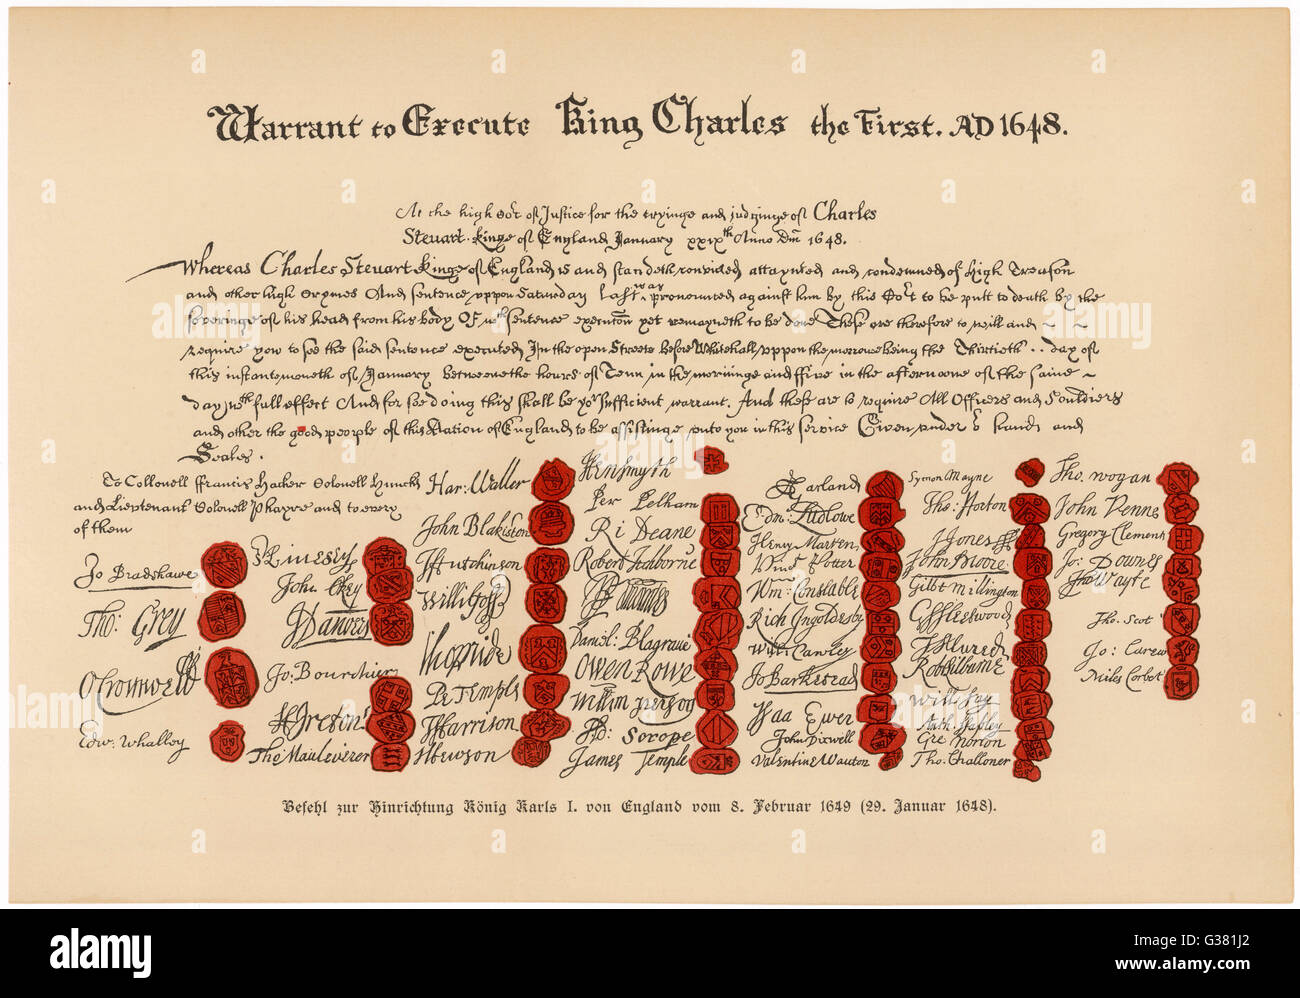 Warrant to Execute King Charles the First. AD 1648.
At the high Cort of Justice for the tryinge and judginge of Charles
Steuart kinge of England January xxixth Anno Dm 1648.
Whereas Charles Steuart kinge of England is and standeth convicted attaynted and condemned of High Treason
and other high Crymes And sentence uppon Saturday last was pronounced against him by this Cort to be putt to death by the
severinge of his head from his body Of wch sentence execucon yet remayneth to be done These are therefore to will and
require you to see the said sentence executed In the open Streete before Whitehall uppon the morrowe being the Thirtieth day of
this instante moneth of January betweene the hours of Tenn in the morninge and ffive in the afternoone of the same
day wth full effect And for soe doing this shall be yor sufficient warrant. And these are to require All Officers and Souldiers
and other the good people of this Nation of England to be assistinge unto you in this service Given under hands and
Seales.
To Collonell ffrancis Hacker Colonell Huncks
and Lieutenant Colonell Phayre and to every
of them
Jo Bradshawe
Tho: Grey
O Cromwell
Edw. Whalley
John Okey
J Danvers
Jo: Bourchier
H Ireton
Tho Mauleverer
Har: Waller
John Blakiston
J Hutchinson
Willi Goff
Tho Pride
Pe Temple
T Harrison
J Hewson
Hen Smyth
Per Pelham
Ri Deane
Robert Tichborne
Daniel Blagrave
Owen Rowe
Ad: Scrope
James Temple
A Garland
Edm: Ludlowe
Henry Marten
Vint Potter
Wm: Constable
Rich Ingoldesby
Will Cawley
Jo Barkestead
Isaa Ewer
John Dixwell
Valentine Wauton
Symon Mayne
Tho: Horton
J Jones
John Moore
Gilbt Millington
G Fleetwood
J Alured
Rob Lilburne
Will Say
Anth Stapley
Gre Norton
Tho: Challoner
Tho. Wogan
John Venne
Gregory Clement
Jo: Downes
Tho Wayte
Tho: Scot
Jo: Carew
Miles Corbet
Befehl zur Hinrichtung König Karls I. von England vom 8. Februar 1649 (29. Januar 1648).
alamy stock photo
G381J2
www.alamy.com